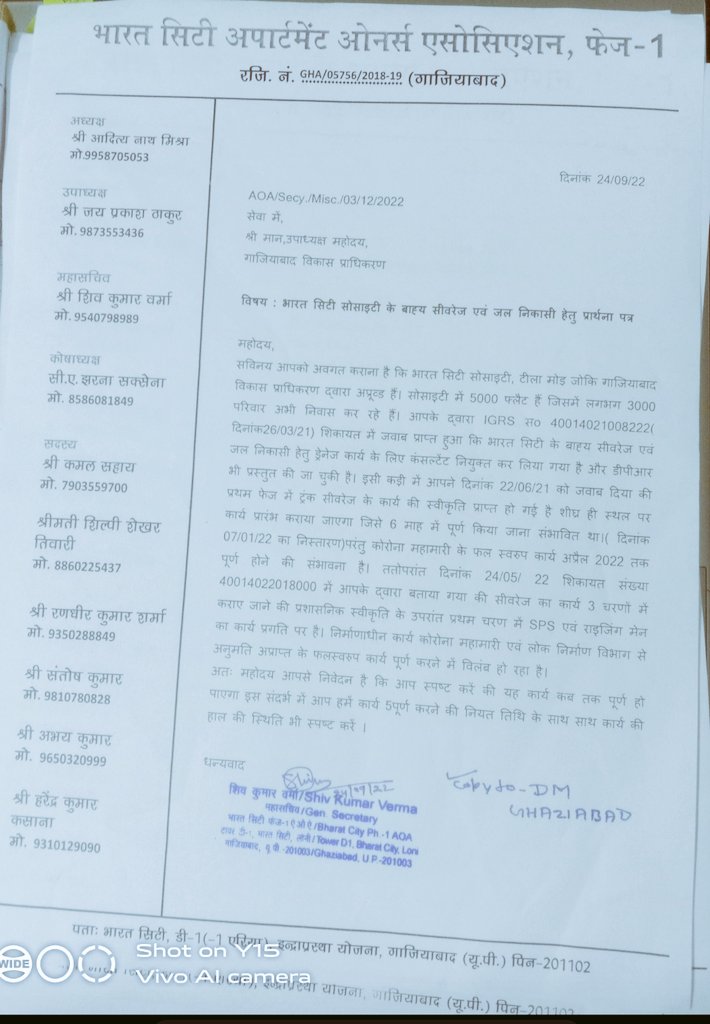 भारत सिटी अपार्टमेंट ओनर्स एसोसिएशन, फेज-1
रजि. नं. GHA/05756/2018-19 (गाजियाबाद)
अध्यक्ष
श्री आदित्य नाथ मिश्रा
मो.9958705053
उपाध्यक्ष
श्री जय प्रकाश ठाकुर
मो. 9873553436
महासचिव
श्री शिव कुमार वर्मा
मो. 9540798989
कोषाध्यक्ष
सी.ए. झरना सक्सेना
मो. 8586081849
सदस्य
श्री कमल सहाय
मो. 7903559700
श्रीमती शिल्पी शेखर
तिवारी
मो. 8860225437
श्री रणधीर कुमार शर्मा
मो. 9350288849
श्री संतोष कुमार
मो. 9810780828
श्री अभय कुमार
मो. 9650320999
श्री हरेंद्र कुमार
कसाना
मो. 9310129090
दिनांक 24/09/22
AOA/Secy./Misc./03/12/2022
सेवा में,
श्री मान,उपाध्यक्ष महोदय,
गाजियाबाद विकास प्राधिकरण
विषय : भारत सिटी सोसाइटी के बाहय सीवरेज एवं जल निकासी हेतु प्रार्थना पत्र
महोदय,
सविनय आपको अवगत कराना है कि भारत सिटी सोसाइटी, टीला मोड़ जोकि गाजियाबाद
विकास प्राधिकरण द्वारा अप्रूव्ड हैं। सोसाइटी में 5000 फ्लैट हैं जिसमें लगभग 3000
परिवार अभी निवास कर रहे हैं। आपके द्वारा IGRS स० 40014021008222(
दिनांक26/03/21) शिकायत में जवाब प्राप्त हुआ कि भारत सिटी के बाहय सीवरेज एवं
जल निकासी हेतु ड्रेनेज कार्य के लिए कंसल्टेंट नियुक्त कर लिया गया है और डीपीआर
भी प्रस्तुत की जा चुकी है। इसी कड़ी में आपने दिनांक 22/06/21 को जवाब दिया की
प्रथम फेज में ट्रंक सीवरेज के कार्य की स्वीकृति प्राप्त हो गई है शीघ्र ही स्थल पर
कार्य प्रारंभ कराया जाएगा जिसे 6 माह में पूर्ण किया जाना संभावित था।( दिनांक
07/01/22 का निस्तारण)परंतु कोरोना महामारी के फल स्वरुप कार्य अप्रैल 2022 तक
पूर्ण होने की संभावना है। ततोपरांत दिनांक 24/05/ 22 शिकायत संख्या
40014022018000 में आपके द्वारा बताया गया की सीवरेज का कार्य 3 चरणों में
कराए जाने की प्रशासनिक स्वीकृति के उपरांत प्रथम चरण में SPS एवं राइजिंग मेन
का कार्य प्रगति पर है। निर्माणाधीन कार्य कोरोना महामारी एवं लोक निर्माण विभाग से
अनुमति अप्राप्त के फलस्वरुप कार्य पूर्ण करने में विलंब हो रहा है।
अतः महोदय आपसे निवेदन है कि आप स्पष्ट करें की यह कार्य कब तक पूर्ण हो
पाएगा इस संदर्भ में आप हमें कार्य 5पूर्ण करने की नियत तिथि के साथ साथ कार्य की
हाल की स्थिति भी स्पष्ट करें ।
धन्यवाद
24/09/22
शिव कुमार वर्मा/Shiv Kumar Verma
महासचिव/Gen. Secretary
भारत सिटी फेज-1 ऐ ओ ऐ/Bharat City Ph.-1 AOA
टावर डी-1, भारत सिटी, लोनी/Tower D1, Bharat City, Loni
गाजियाबाद, यू पी.-201003/Ghaziabad, U.P.-201003
Copy to - DM
GHAZIABAD
पताः भारत सिटी, डी-1(-1 एरिया), इन्द्राप्रस्था योजना, गाजियाबाद (यू.पी.) पिन-201102
इन्द्राप्रस्था योजना, गाजियाबाद (यू.पी.) पिन-201102
WIDE
Shot on Y15
Vivo AI camera